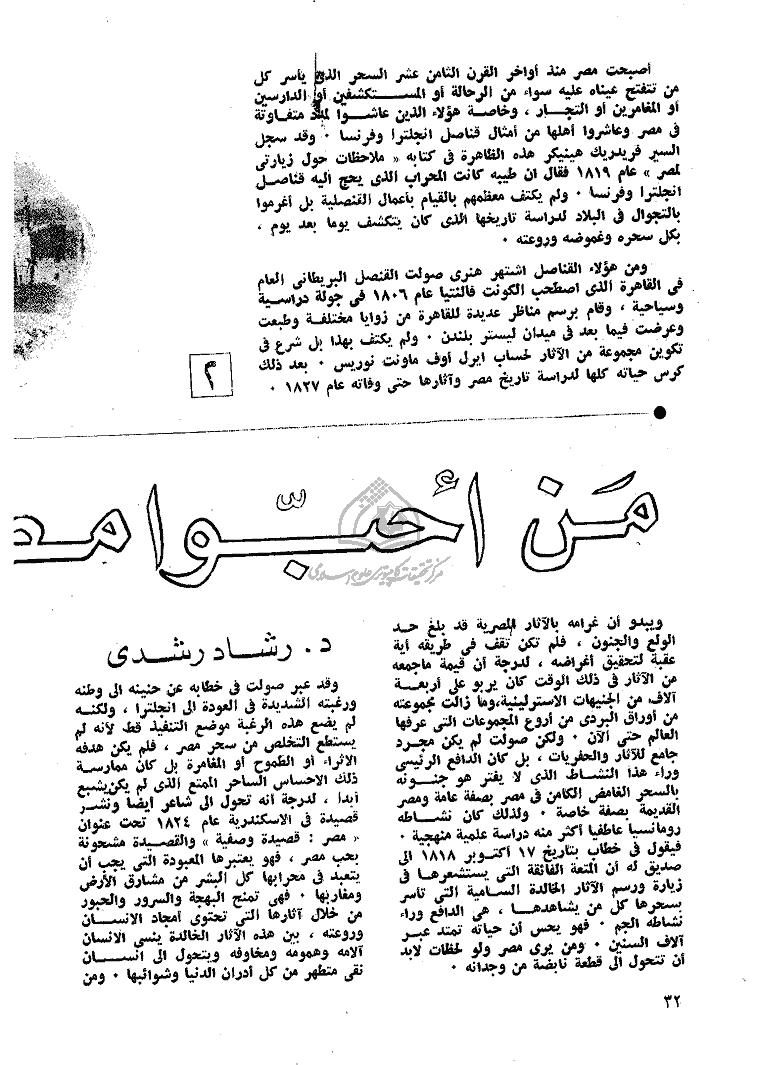 أصبحت مصر منذ أواخر القرن الثامن عشر السحر الذى يأسر كل
من تتفتح عيناه عليه سواء من الرحالة أو المستكشفين أو الدارسين
أو المغامرين أو التجار ، وخاصة هؤلاء الذين عاشوا لمدد متفاوتة
فى مصر وعاشروا أهلها من أمثال قناصل انجلترا وفرنسا ٠ وقد سجل
السير فريدريك هينيكر هذه الظاهرة فى كتابه « ملاحظات حول زيارتى
لمصر » عام ١٨١٩ فقال ان طيبه كانت المحراب الذى يحج اليه قناصل
انجلترا وفرنسا ٠ ولم يكتف معظمهم بالقيام بأعمال القنصلية بل أغرموا
بالتجوال فى البلاد لدراسة تاريخها الذى كان يتكشف يوما بعد يوم ،
بكل سحره وغموضه وروعته ٠
ومن هؤلاء القناصل اشتهر هنرى صولت القنصل البريطانى العام
فى القاهرة الذى اصطحب الكونت فالنتيا عام ١٨٠٦ فى جولة دراسية
وسياحية ، وقام برسم مناظر عديدة للقاهرة من زوايا مختلفة وطبعت
وعرضت فيما بعد فى ميدان ليستر بلندن ٠ ولم يكتف بهذا بل شرع فى
تكوين مجموعة من الآثار لحساب ايرل أوف ماونت نوريس ٠ بعد ذلك
كرس حياته كلها لدراسة تاريخ مصر وآثارها حتى وفاته عام ١٨٢٧ ٠
٢
مَن أحبّوا مصـ
مركز تحقيقات كامپيوترى علوم اسلامى
ويبدو أن غرامه بالآثار المصرية قد بلغ حد
الولع والجنون ، فلم تكن تقف فى طريقه أية
عقبة لتحقيق أغراضه ، لدرجة أن قيمة ماجمعه
من الآثار فى ذلك الوقت كان يربو على أربعة
آلاف من الجنيهات الاسترلينية،وما زالت مجموعته
من أوراق البردى من أروع المجموعات التى عرفها
العالم حتى الآن ٠ ولكن صولت لم يكن مجرد
جامع للآثار والحفريات ، بل كان الدافع الرئيسى
وراء هذا النشاط الذى لا يفتر هو جنونه
بالسحر الغامض الكامن فى مصر بصفة عامة ومصر
القديمة بصفة خاصة ٠ ولذلك كان نشاطه
رومانسيا عاطفيا أكثر منه دراسة علمية منهجية ٠
فيقول فى خطاب بتاريخ ١٧ أكتوبر ١٨١٨ الى
صديق له أن المتعة الفائقة التى يستشعرها فى
زيارة ورسم الآثار الخالدة السامية التى تأسر
بسحرها كل من يشاهدها ، هى الدافع وراء
نشاطه الجم ٠ فهو يحس أن حياته تمتد عبر
آلاف السنين ٠ ومن يرى مصر ولو لحظات لابد
أن تتحول الى قطعة نابضة من وجدانه ٠
د. رشاد رشدى
وقد عبر صولت فى خطابه عن حنينه الى وطنه
ورغبته الشديدة فى العودة الى انجلترا ، ولكنه
لم يضع هذه الرغبة موضع التنفيذ قط لأنه لم
يستطع التخلص من سحر مصر ، فلم يكن هدفه
الاثراء أو الطموح أو المغامرة بل كان ممارسة
ذلك الاحساس الساحر الممتع الذى لم يكن يشبع
أبدا ، لدرجة انه تحول الى شاعر ايضا ونشر
قصيدة فى الاسكندرية عام ١٨٢٤ تحت عنوان
« مصر : قصيدة وصفية » والقصيدة مشحونة
بحب مصر ، فهو يعتبرها المعبودة التى يجب أن
يتعبد فى محرابها كل البشر من مشارق الأرض
ومغاربها ٠ فهى تمنح البهجة والسرور والحبور
من خلال آثارها التى تحتوى أمجاد الانسان
وروعته ، بين هذه الآثار الخالدة ينسى الانسان
آلامه وهمومه ومخاوفه ويتحول الى انسان
نقى متطهر من كل أدران الدنيا وشوائبها ٠ ومن
٣٢